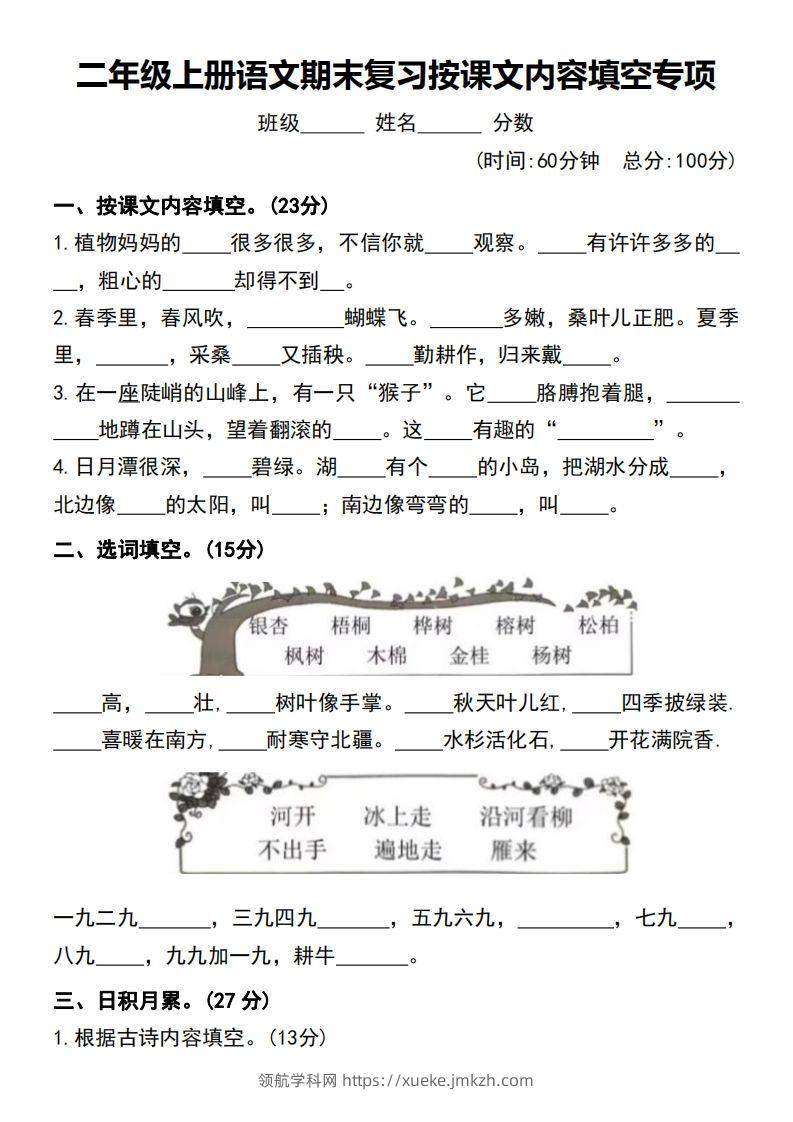 二年级上册语文期末复习按课文内容填空专项
班级______ 姓名______ 分数
(时间:60分钟 总分:100分)
一、按课文内容填空。(23分)
1.植物妈妈的____很多很多，不信你就____观察。____有许许多多的__
__，粗心的______却得不到__。
2.春季里，春风吹，________蝴蝶飞。______多嫩，桑叶儿正肥。夏季
里，______，采桑____又插秧。____勤耕作，归来戴____。
3.在一座陡峭的山峰上，有一只“猴子”。它____胳膊抱着腿，______
____地蹲在山头，望着翻滚的____。这____有趣的“________”。
4.日月潭很深，____碧绿。湖____有个____的小岛，把湖水分成____，
北边像____的太阳，叫____；南边像弯弯的____，叫____。
二、选词填空。(15分)
银杏 梧桐 桦树 榕树 松柏
枫树 木棉 金桂 杨树
____高，____壮,____树叶像手掌。____秋天叶儿红,____四季披绿装.
____喜暖在南方,____耐寒守北疆。____水杉活化石,____开花满院香.
河开 冰上走 沿河看柳
不出手 遍地走 雁来
一九二九______，三九四九______，五九六九，________，七九____，
八九____，九九加一九，耕牛______。
三、日积月累。(27 分)
1.根据古诗内容填空。(13分)
领航学科网 https://xueke.jmkzh.com